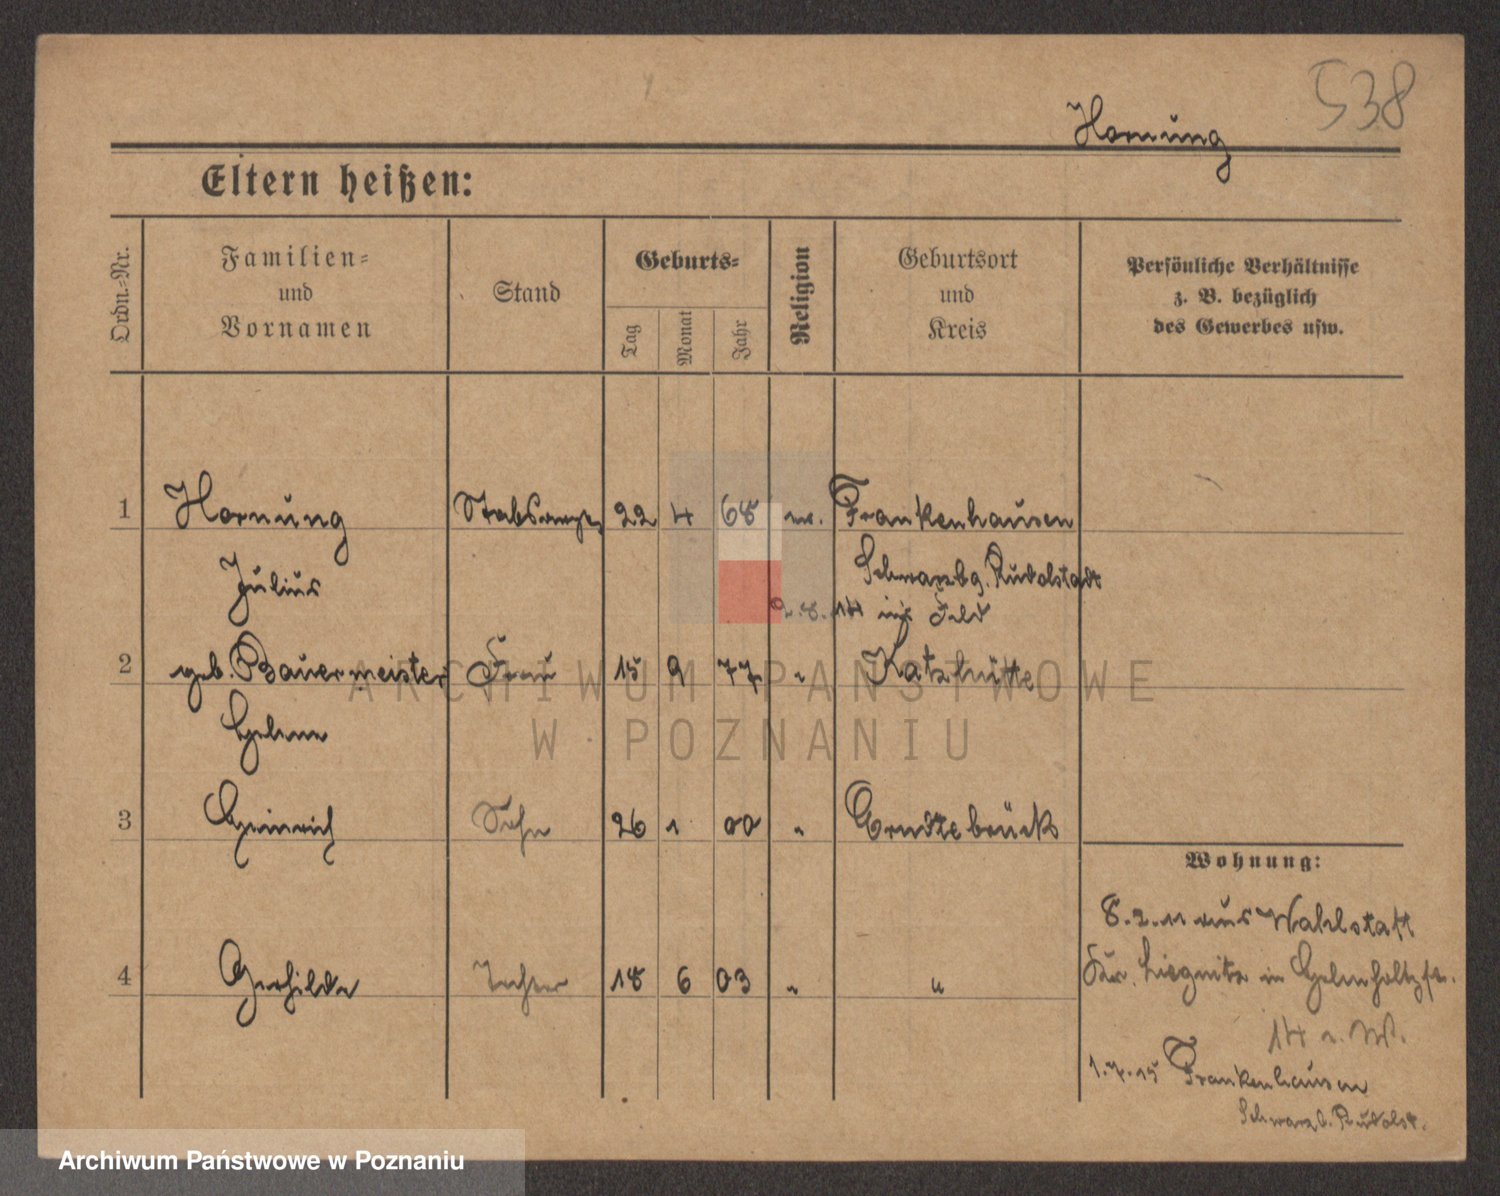 538
Hornung
Eltern heißen:
Ordn.-Nr.
Familien-
und
Vornamen
Stand
Geburts-
Tag
Monat
Jahr
Religion
Geburtsort
und
Kreis
Persönliche Verhältnisse
z. B. bezüglich
des Gewerbes usw.
1 Hornung Stabsarzt 22 4 68 ev. Frankenhausen
Julius Schwarzbg. Rudolstadt
2.8.14 ins Feld
2 geb. Bauermeister Frau 15 9 77 " Katzhütte
Helene
3 Heinrich Sohn 26 1 00 " Erndtebrück
Wohnung:
8.2.11 aus Wahlstatt
4 Gerhilde Tochter 18 6 03 " "
Kr. Liegnitz in Helmholtzstr.
14 a. W.
1.7.15 Frankenhausen
Schwarzb. Rudolst.
ARCHIWUM PAŃSTWOWE
W POZNANIU
Archiwum Państwowe w Poznaniu